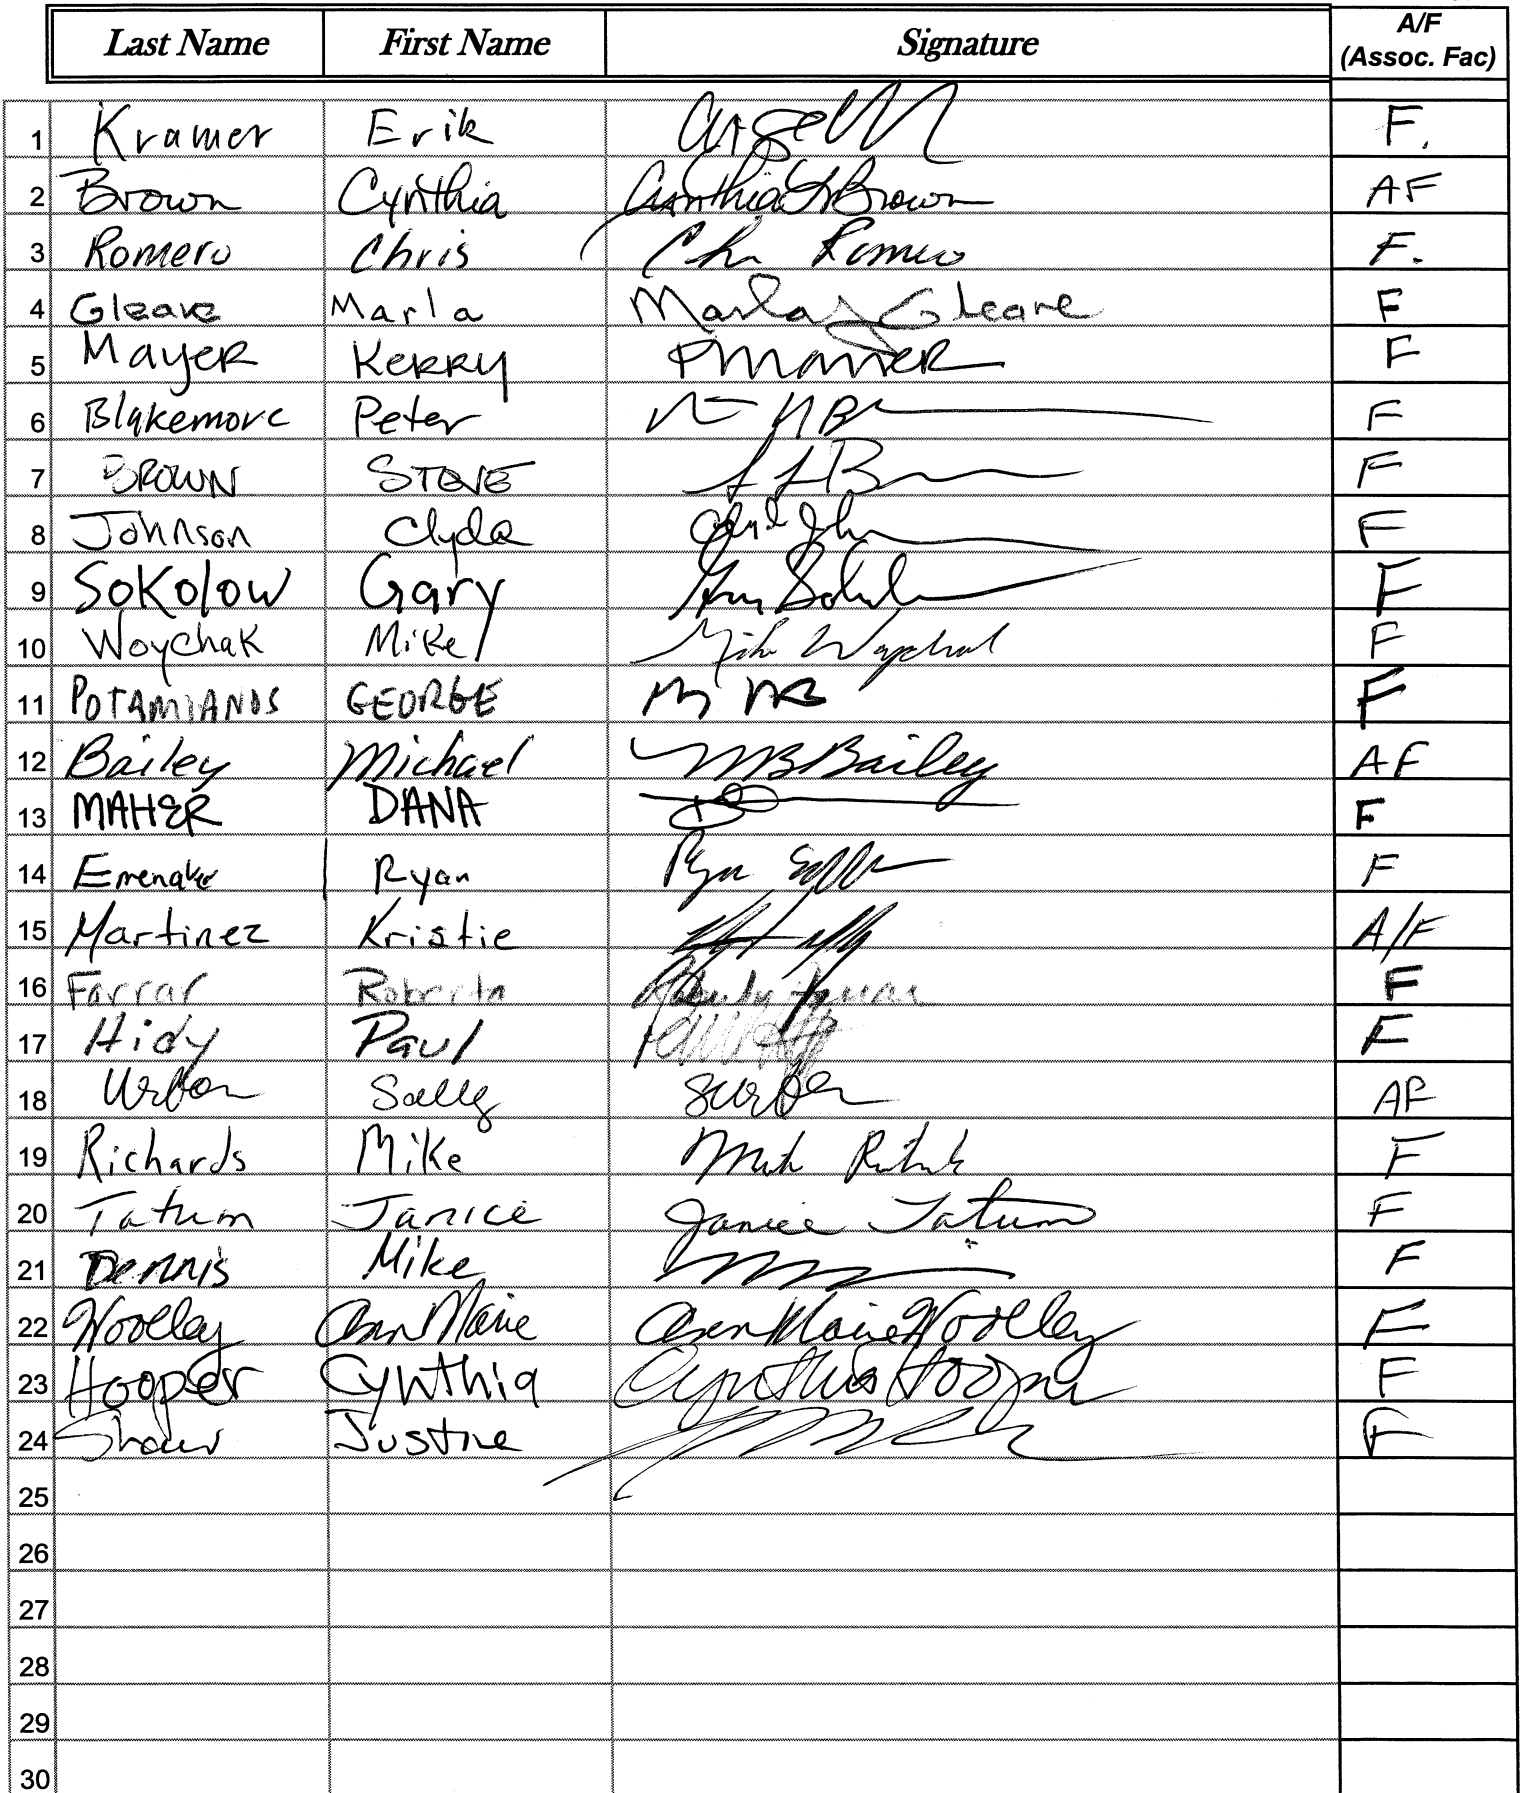 Last Name First Name Signature A/F
(Assoc. Fac)
1 Kramer Erik F.
2 Brown Cynthia Cynthia Brown AF
3 Romero Chris Chris Romero F.
4 Gleave Marla Marla Gleave F
5 Mayer Kerry F
6 Blakemore Peter F
7 BROWN STEVE F
8 Johnson Clyde F
9 Sokolow Gary F
10 Woychak Mike Mike Woychak F
11 POTAMIANOS GEORGE F
12 Bailey Michael MBBailey AF
13 MAHER DANA F
14 Emenaker Ryan F
15 Martinez Kristie A/F
16 Farrar Roberta F
17 Hidy Paul F
18 Urban Sally SUrban AF
19 Richards Mike F
20 Tatum Janice Janice Tatum F
21 Dennis Mike F
22 Woolley Ann Marie Ann Marie Woolley F
23 Hooper Cynthia Cynthia Hooper F
24 Shaw Justine F
25
26
27
28
29
30